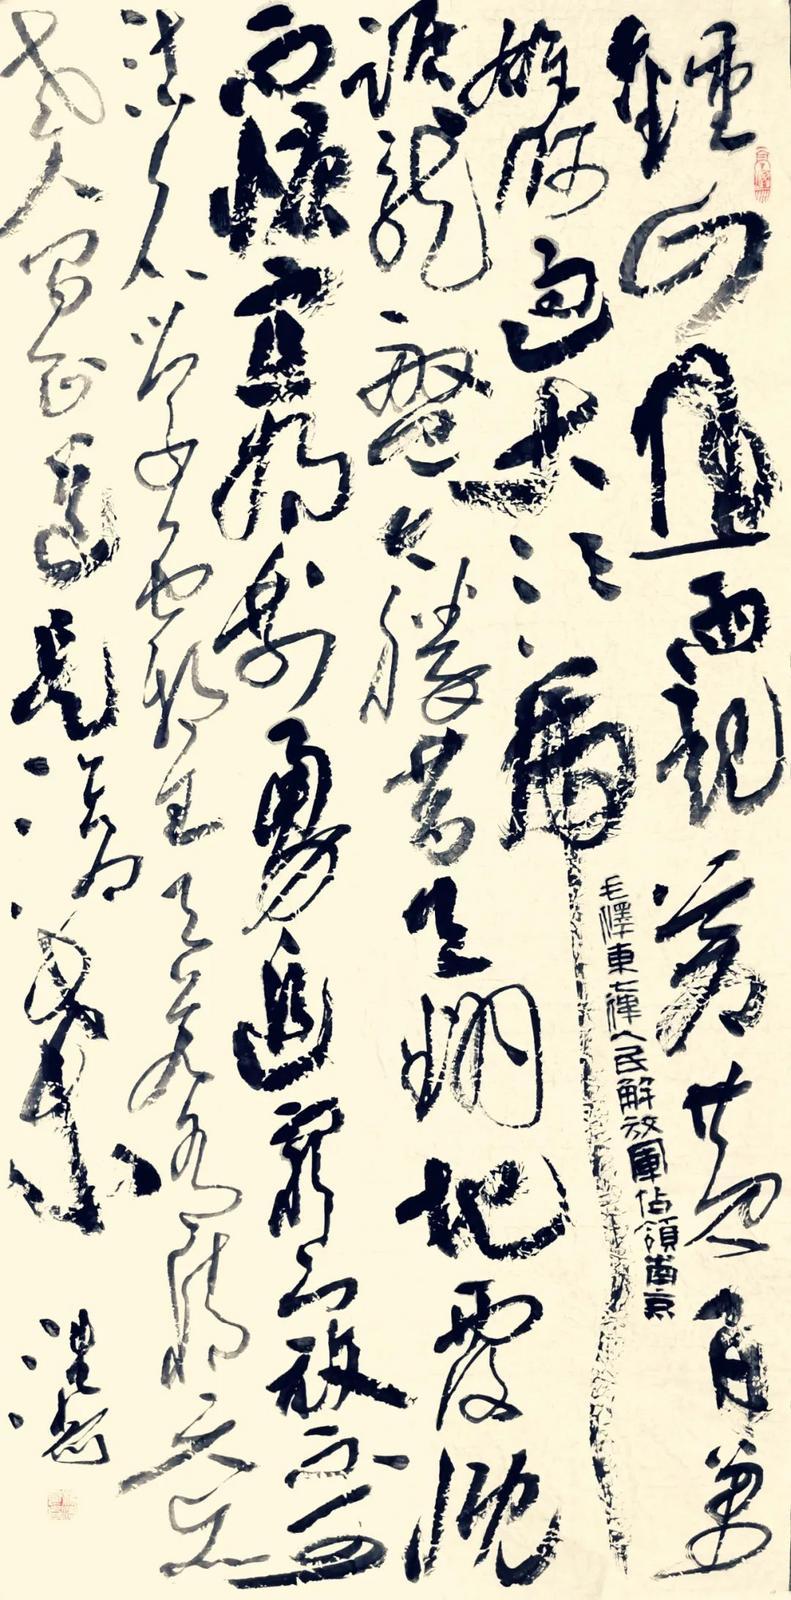 鍾山風雨起蒼黃百萬
雄師過大江虎
毛澤東七律人民解放軍佔領南京
踞龍盤今勝昔天翻地覆慨
而慷宜將剩勇追窮寇不可
沽名學霸王天若有情天亦
老人間正道是滄桑